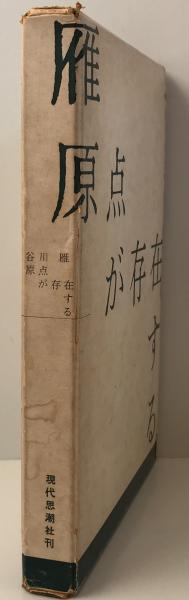 雁
原点が存在する
谷川雁
原点が存在する
現代思潮社刊